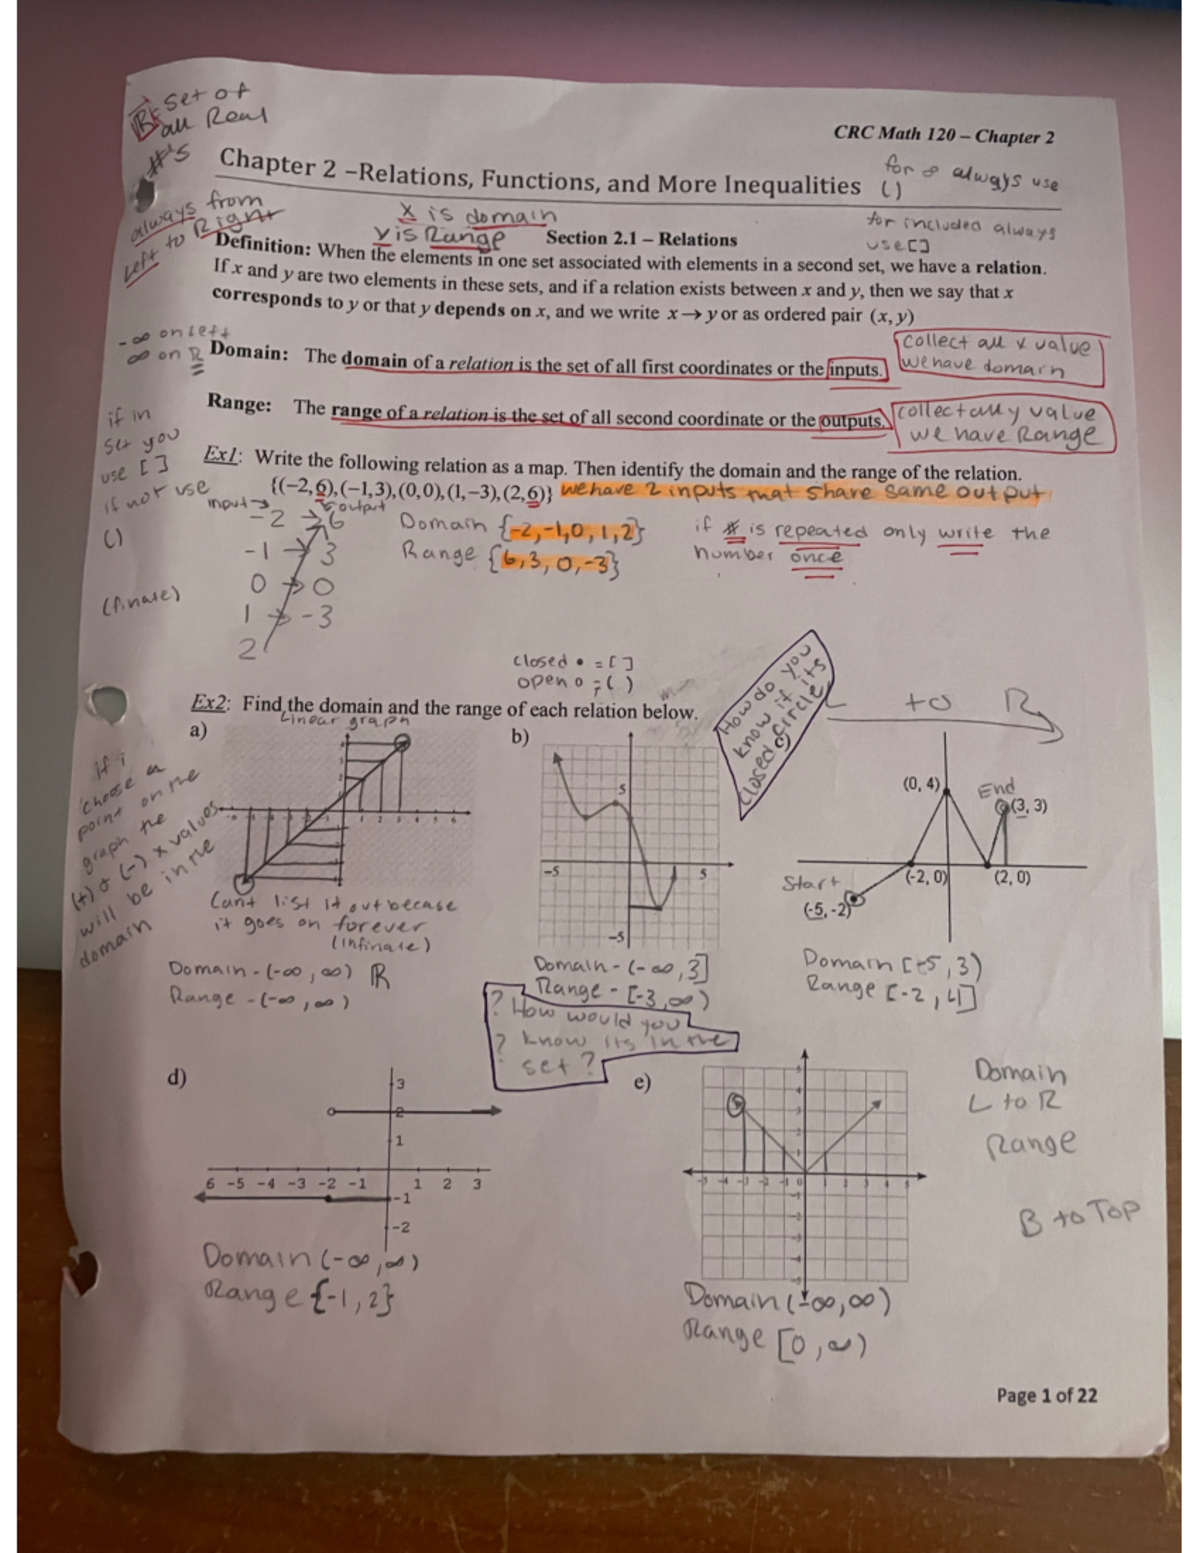 R = set of
all Real
#'s
CRC Math 120 – Chapter 2
Chapter 2 –Relations, Functions, and More Inequalities
for ∞ always use
( )
always from
left to Right
x is domain
y is Range
Section 2.1 – Relations
for included always
use [ ]
Definition: When the elements in one set associated with elements in a second set, we have a relation.
If x and y are two elements in these sets, and if a relation exists between x and y, then we say that x
corresponds to y or that y depends on x, and we write x → y or as ordered pair (x, y)
-∞ on left
∞ on R
Domain: The domain of a relation is the set of all first coordinates or the inputs.
collect all x value
we have domain
Range: The range of a relation is the set of all second coordinate or the outputs.
collect all y value
we have Range
if in
set you
use [ ]
if not use
( )
(finate)
Ex1: Write the following relation as a map. Then identify the domain and the range of the relation.
{(−2,6),(−1,3),(0,0),(1,−3),(2,6)} we have 2 inputs that share same output
input → output
-2 → 6
-1 → 3
0 → 0
1 → -3
2
Domain {-2,-1,0,1,2}
Range {6,3,0,-3}
if # is repeated only write the
number once
closed • = [ ]
open o = ( )
Ex2: Find the domain and the range of each relation below.
How do you
know if its
closed circle
L to R
a)
Linear graph
if i
choose a
point on the
graph the
(+) or (-) x values
will be in the
domain
Cant list it out becase
it goes on forever
(infinate)
Domain - (-∞,∞) R
Range - (-∞,∞)
b)
5
-5
5
-5
Domain - (-∞,3]
Range - [-3,∞)
? How would you
? know its in the
set?
(0, 4)
End
(3, 3)
(-2, 0)
(2, 0)
Start
(-5, -2)
Domain [-5,3)
Range [-2,4]
d)
3
2
1
6 -5 -4 -3 -2 -1 1 2 3
-1
-2
Domain (-∞,∞)
Range {-1,2}
e)
Domain (-∞,∞)
Range [0,∞)
Domain
L to R
Range
B to Top
Page 1 of 22